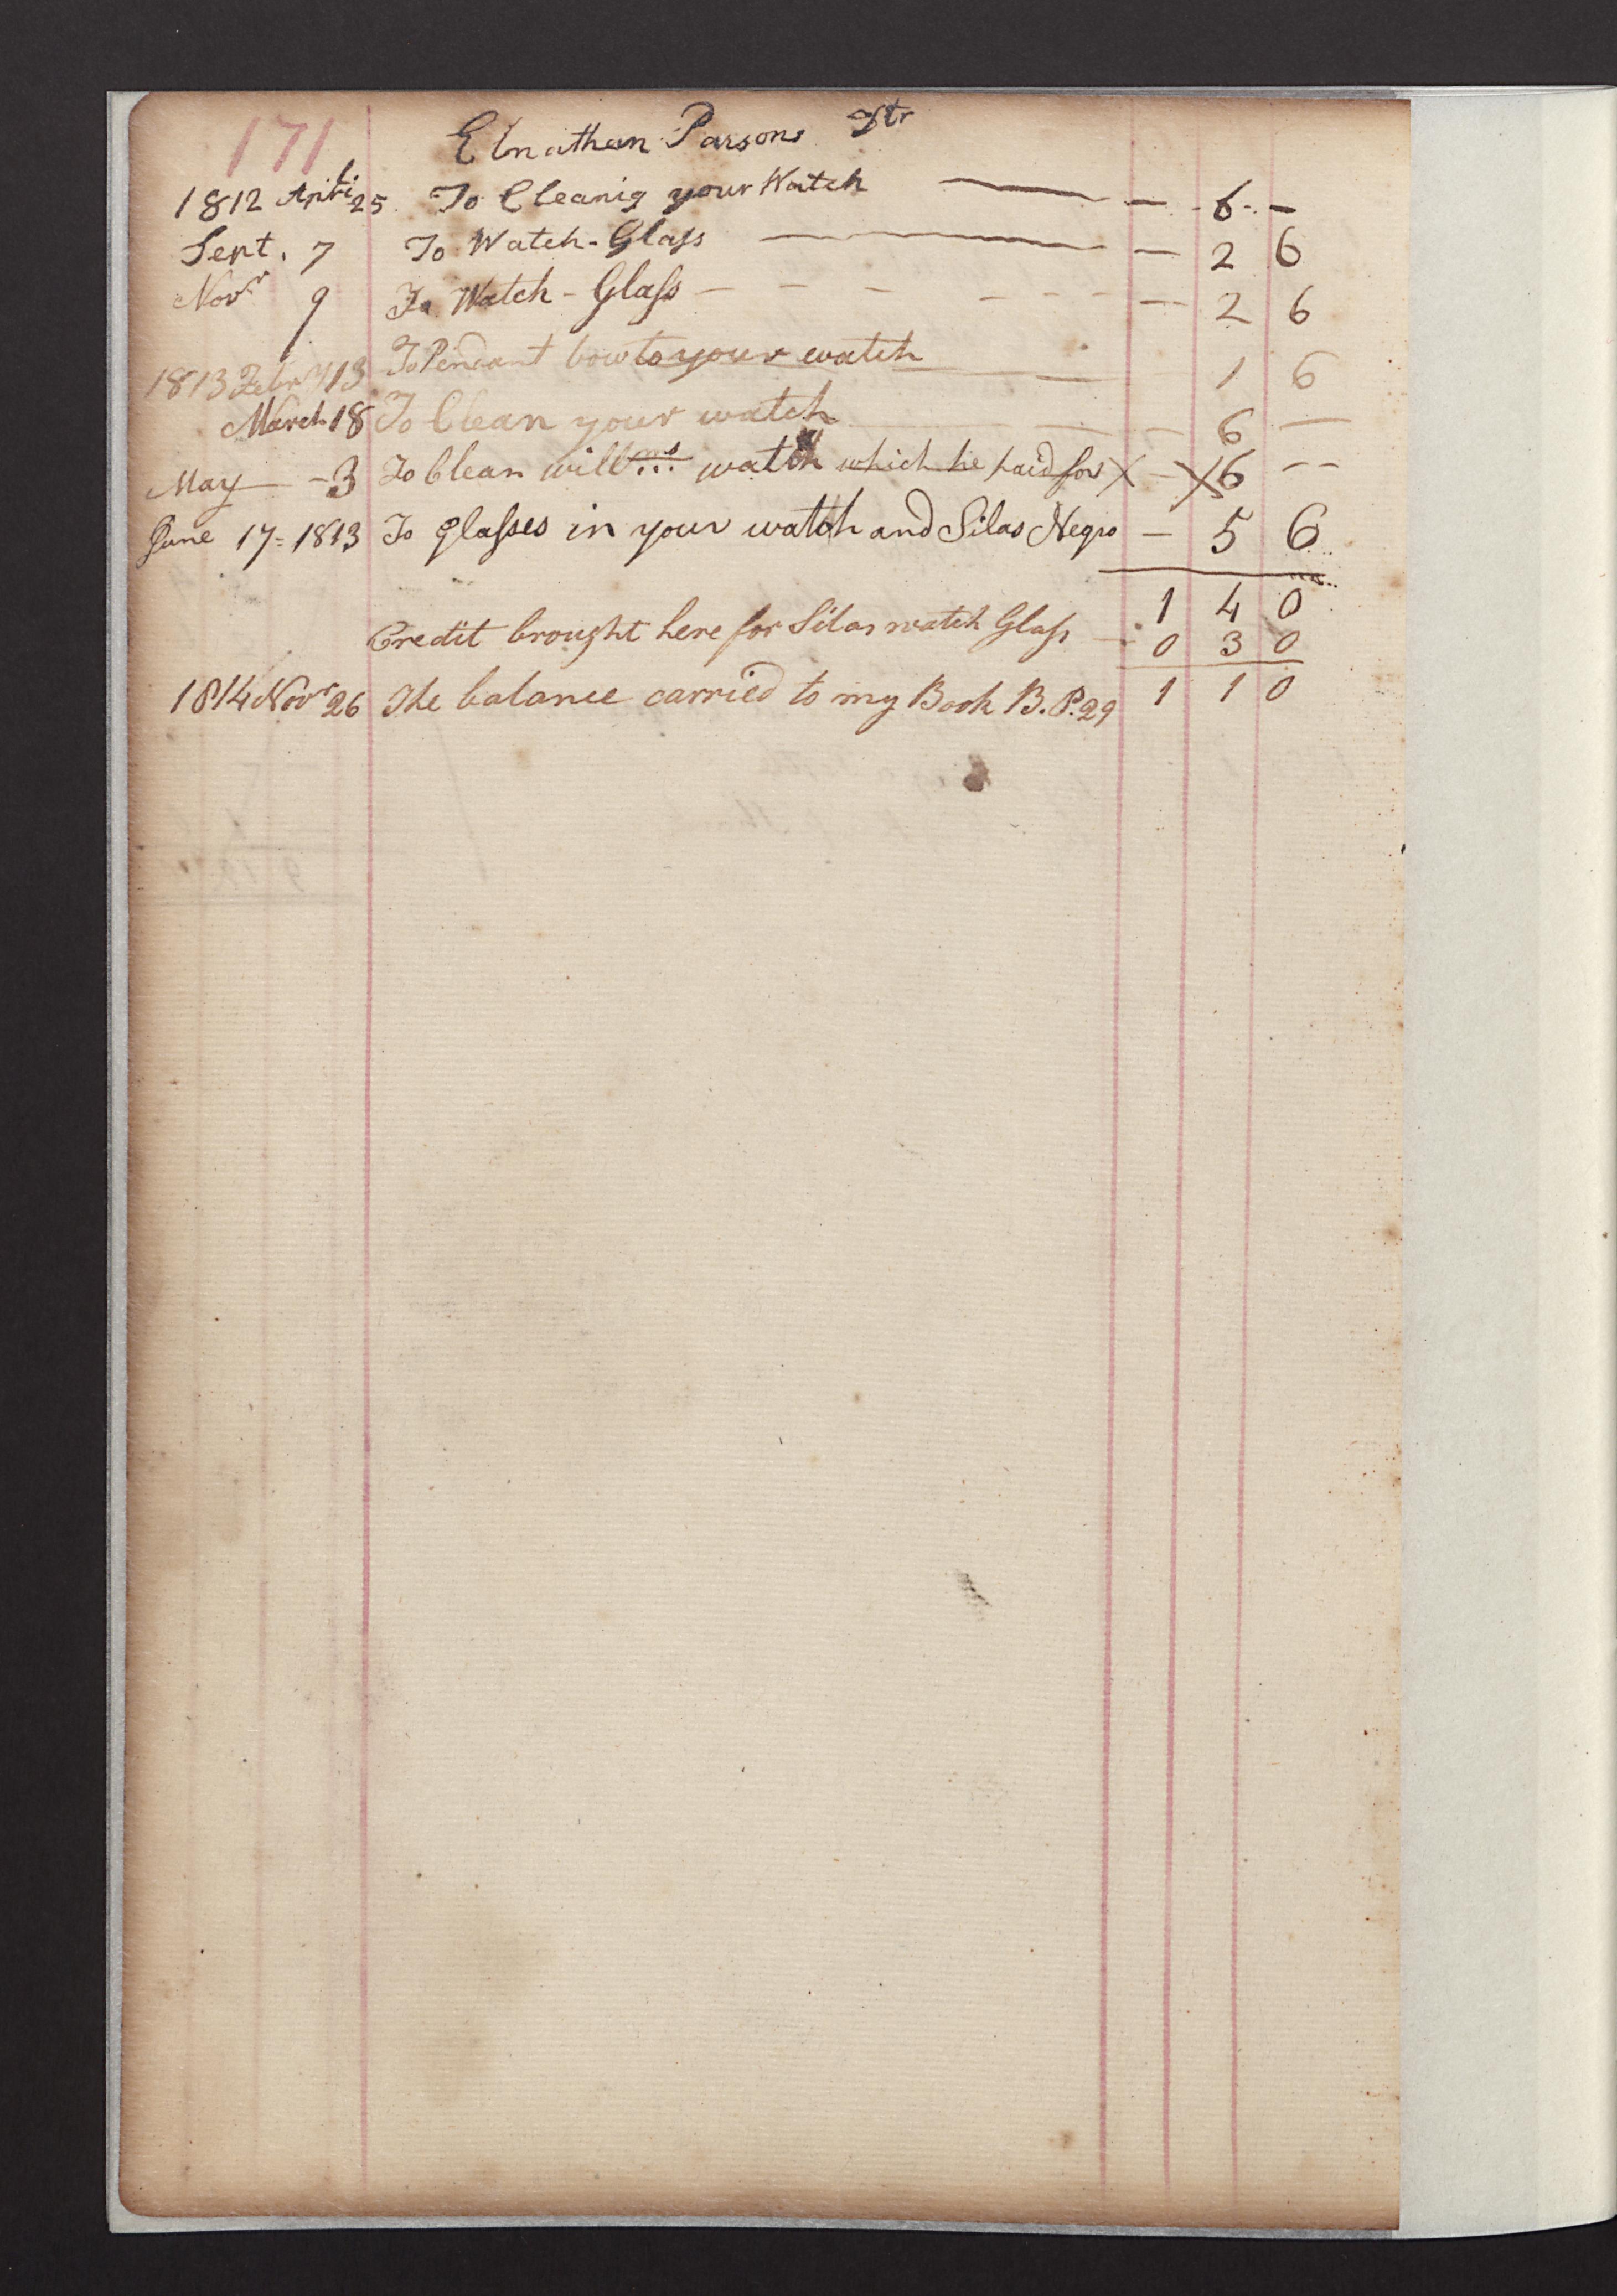 171 Elnathan Parsons Dtr
1812 April 25 To Cleanig your Watch — — 6 —
Sept. 7 To Watch-Glass — — 2 6
Novr 9 To Watch-Glass — — 2 6
1813 Febry 13 To Pendant bow to your watch — 1 6
March 18 To Clean your watch — 6 —
May — 3 To Clean willms watch which he paid for X — X6 —
June 17 = 1813 To glasses in your watch and Silas Negro — 5 6
1 4 0
Credit brought here for Silas watch Glass — 0 3 0
1814 Novr 26 The balance carried to my Book B. P. 29 1 1 0